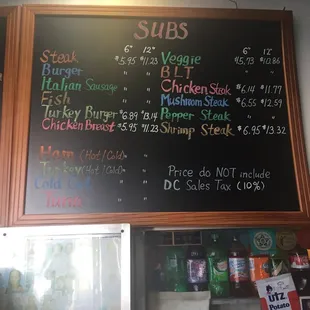 SUBS
6" 12"
Steak $5.95 $11.23
Burger " "
Italian Sausage " "
Fish " "
Turkey Burger $6.89 $13.14
Chicken Breast $5.95 $11.23
Ham (Hot/Cold) " "
Turkey (Hot/Cold) " "
Cold Cut " "
Tuna " "
6" 12"
Veggie $5.73 $10.86
BLT " "
Chicken Steak $6.14 $11.77
Mushroom Steak $6.55 $12.59
Pepper Steak " "
Shrimp Steak $6.95 $13.32
Price do NOT include
DC Sales Tax (10%)
utz
Potato